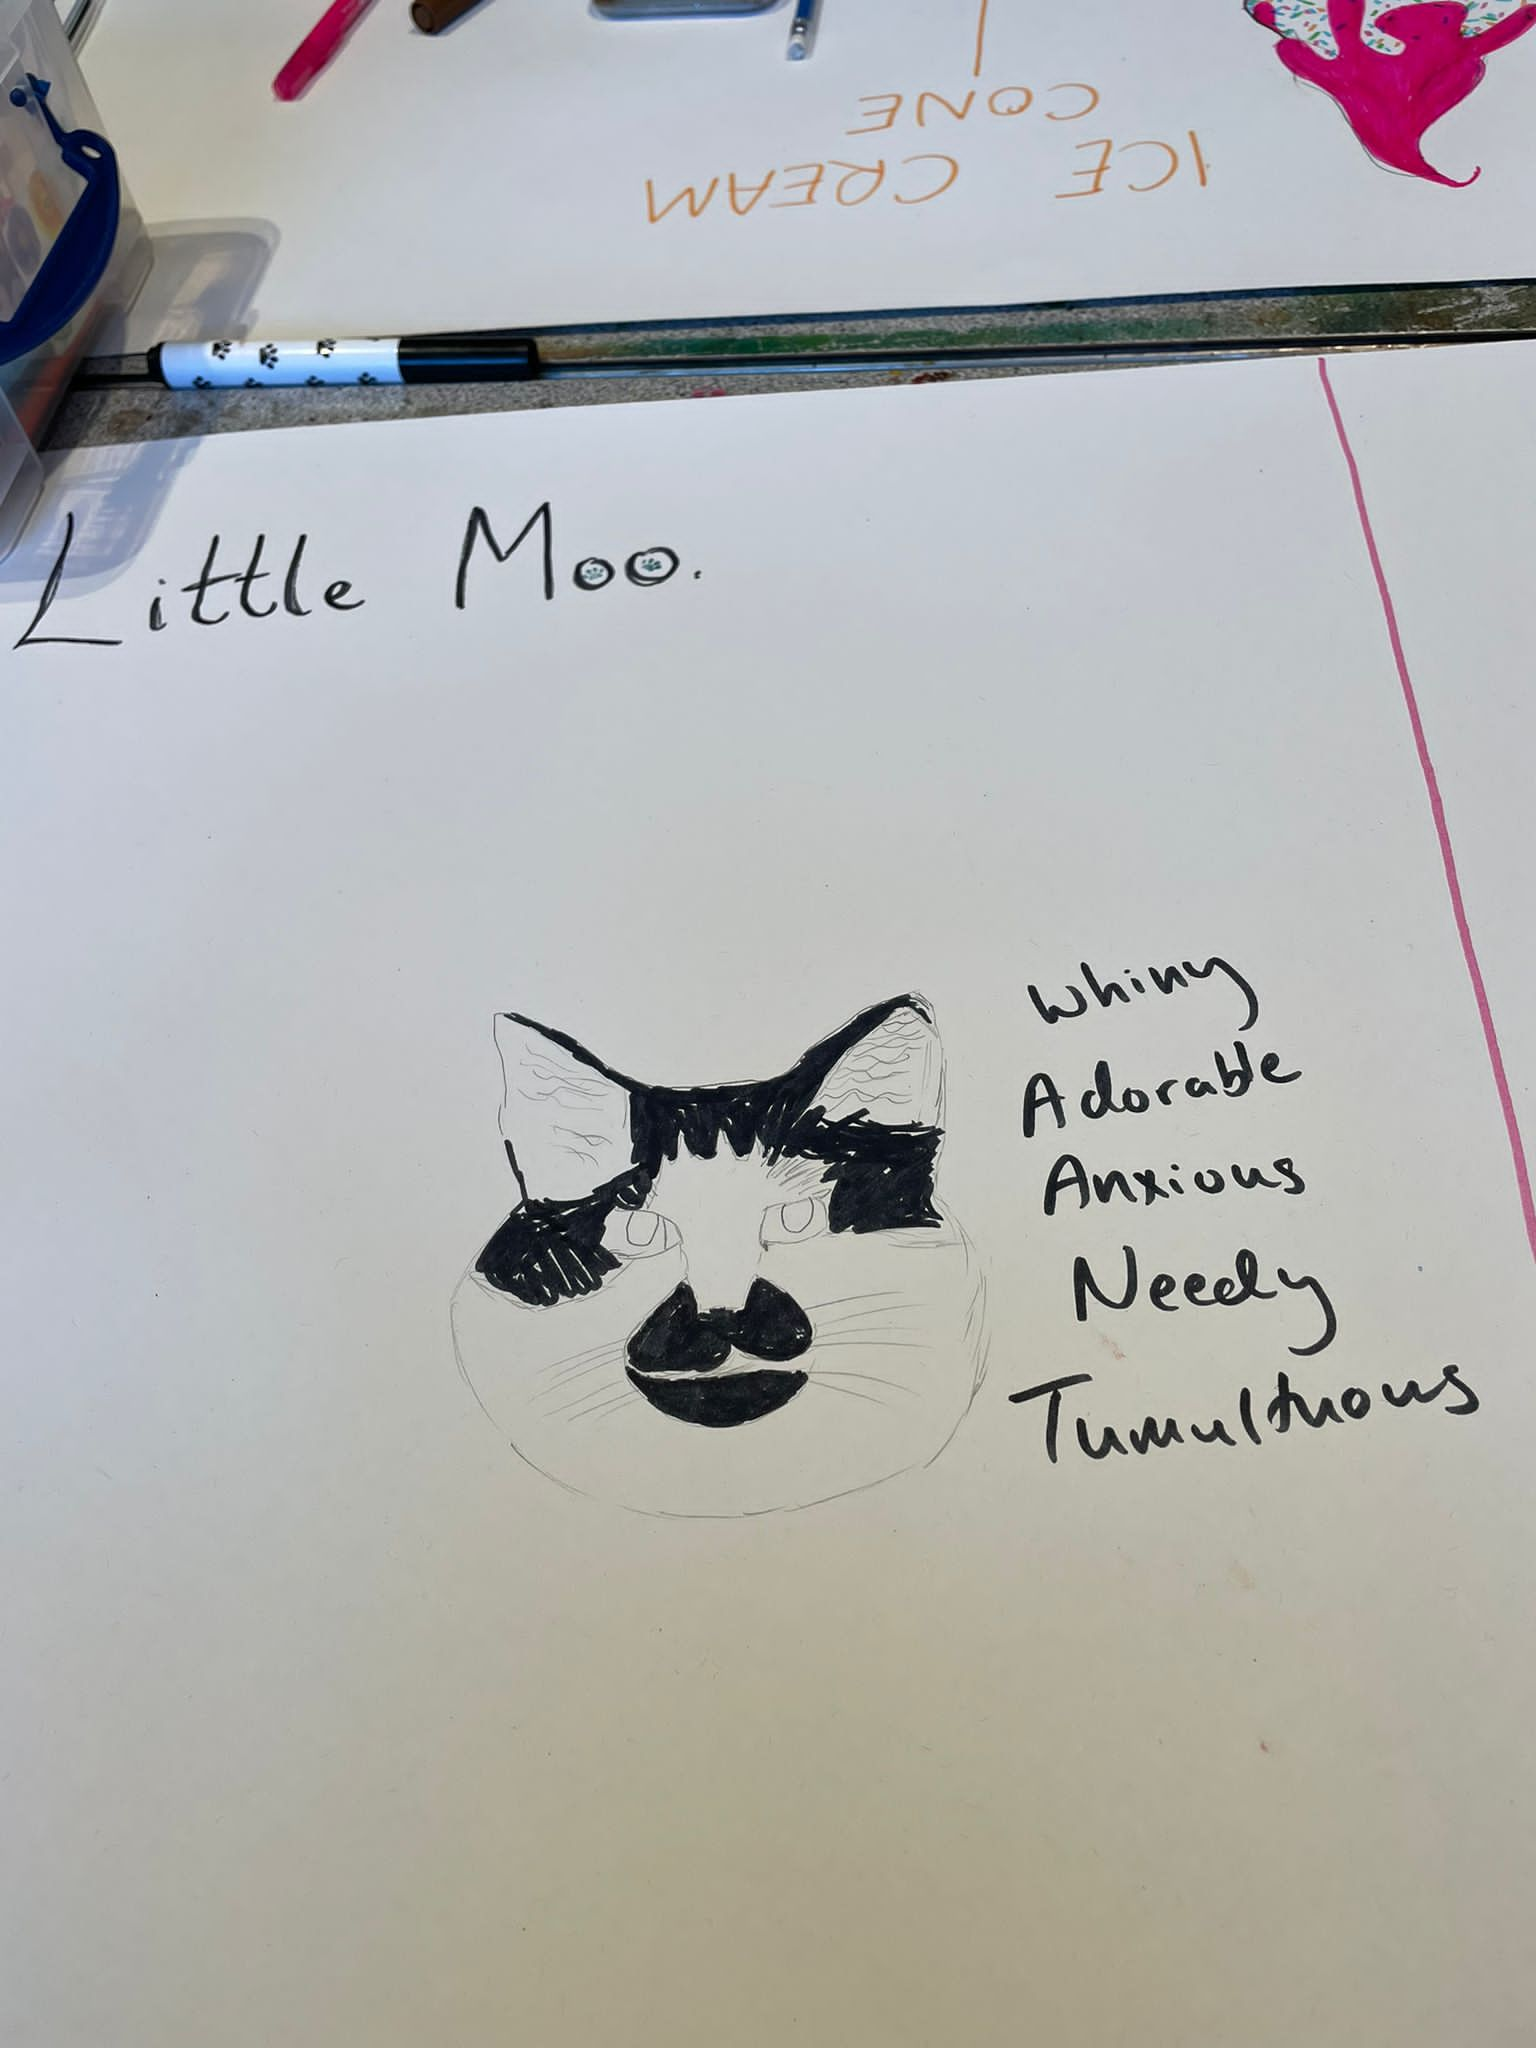 ICE CREAM
CONE
Little Moo.
Whiny
Adorable
Anxious
Needy
Tumultuous